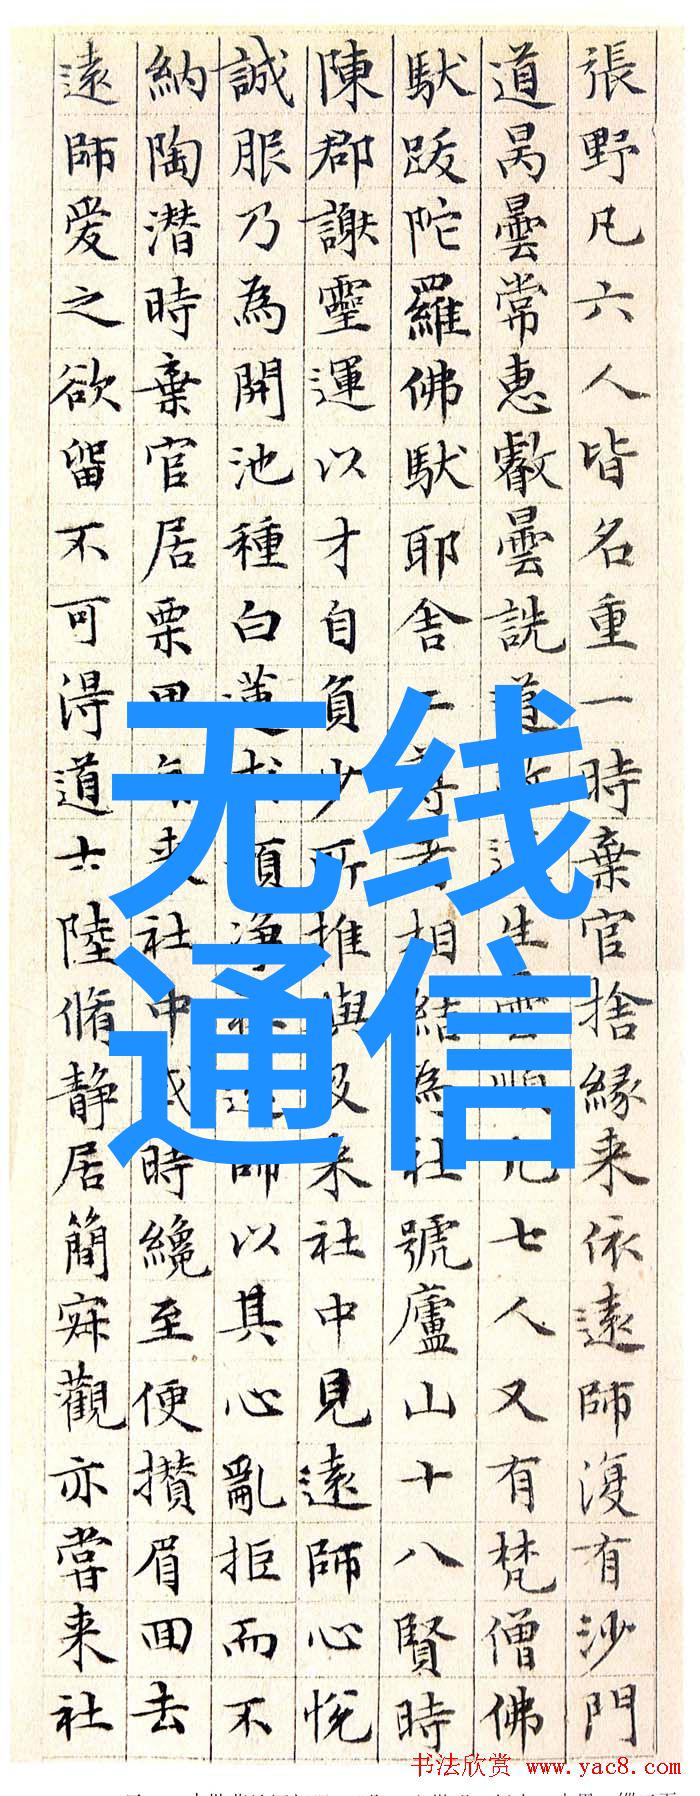 張野凡六人皆名重一時棄官捨緣来依遠師復有沙門
道昺曇常惠叡曇詵道敬道生曇順凡七人又有梵僧佛
馱跋陀羅佛馱耶舍二尊者相結為社號廬山十八賢時
陳郡謝靈運以才自負少所推與及来社中見遠師心悅
誠服乃為開池種白蓮求預淨社遠師以其心亂拒而不
納陶潜時棄官居栗里每来社中或時纔至便攢眉囬去
遠師愛之欲留不可得道士陸脩静居簡寂觀亦嘗来社
无线
通信
书法欣赏 www.yac8.com